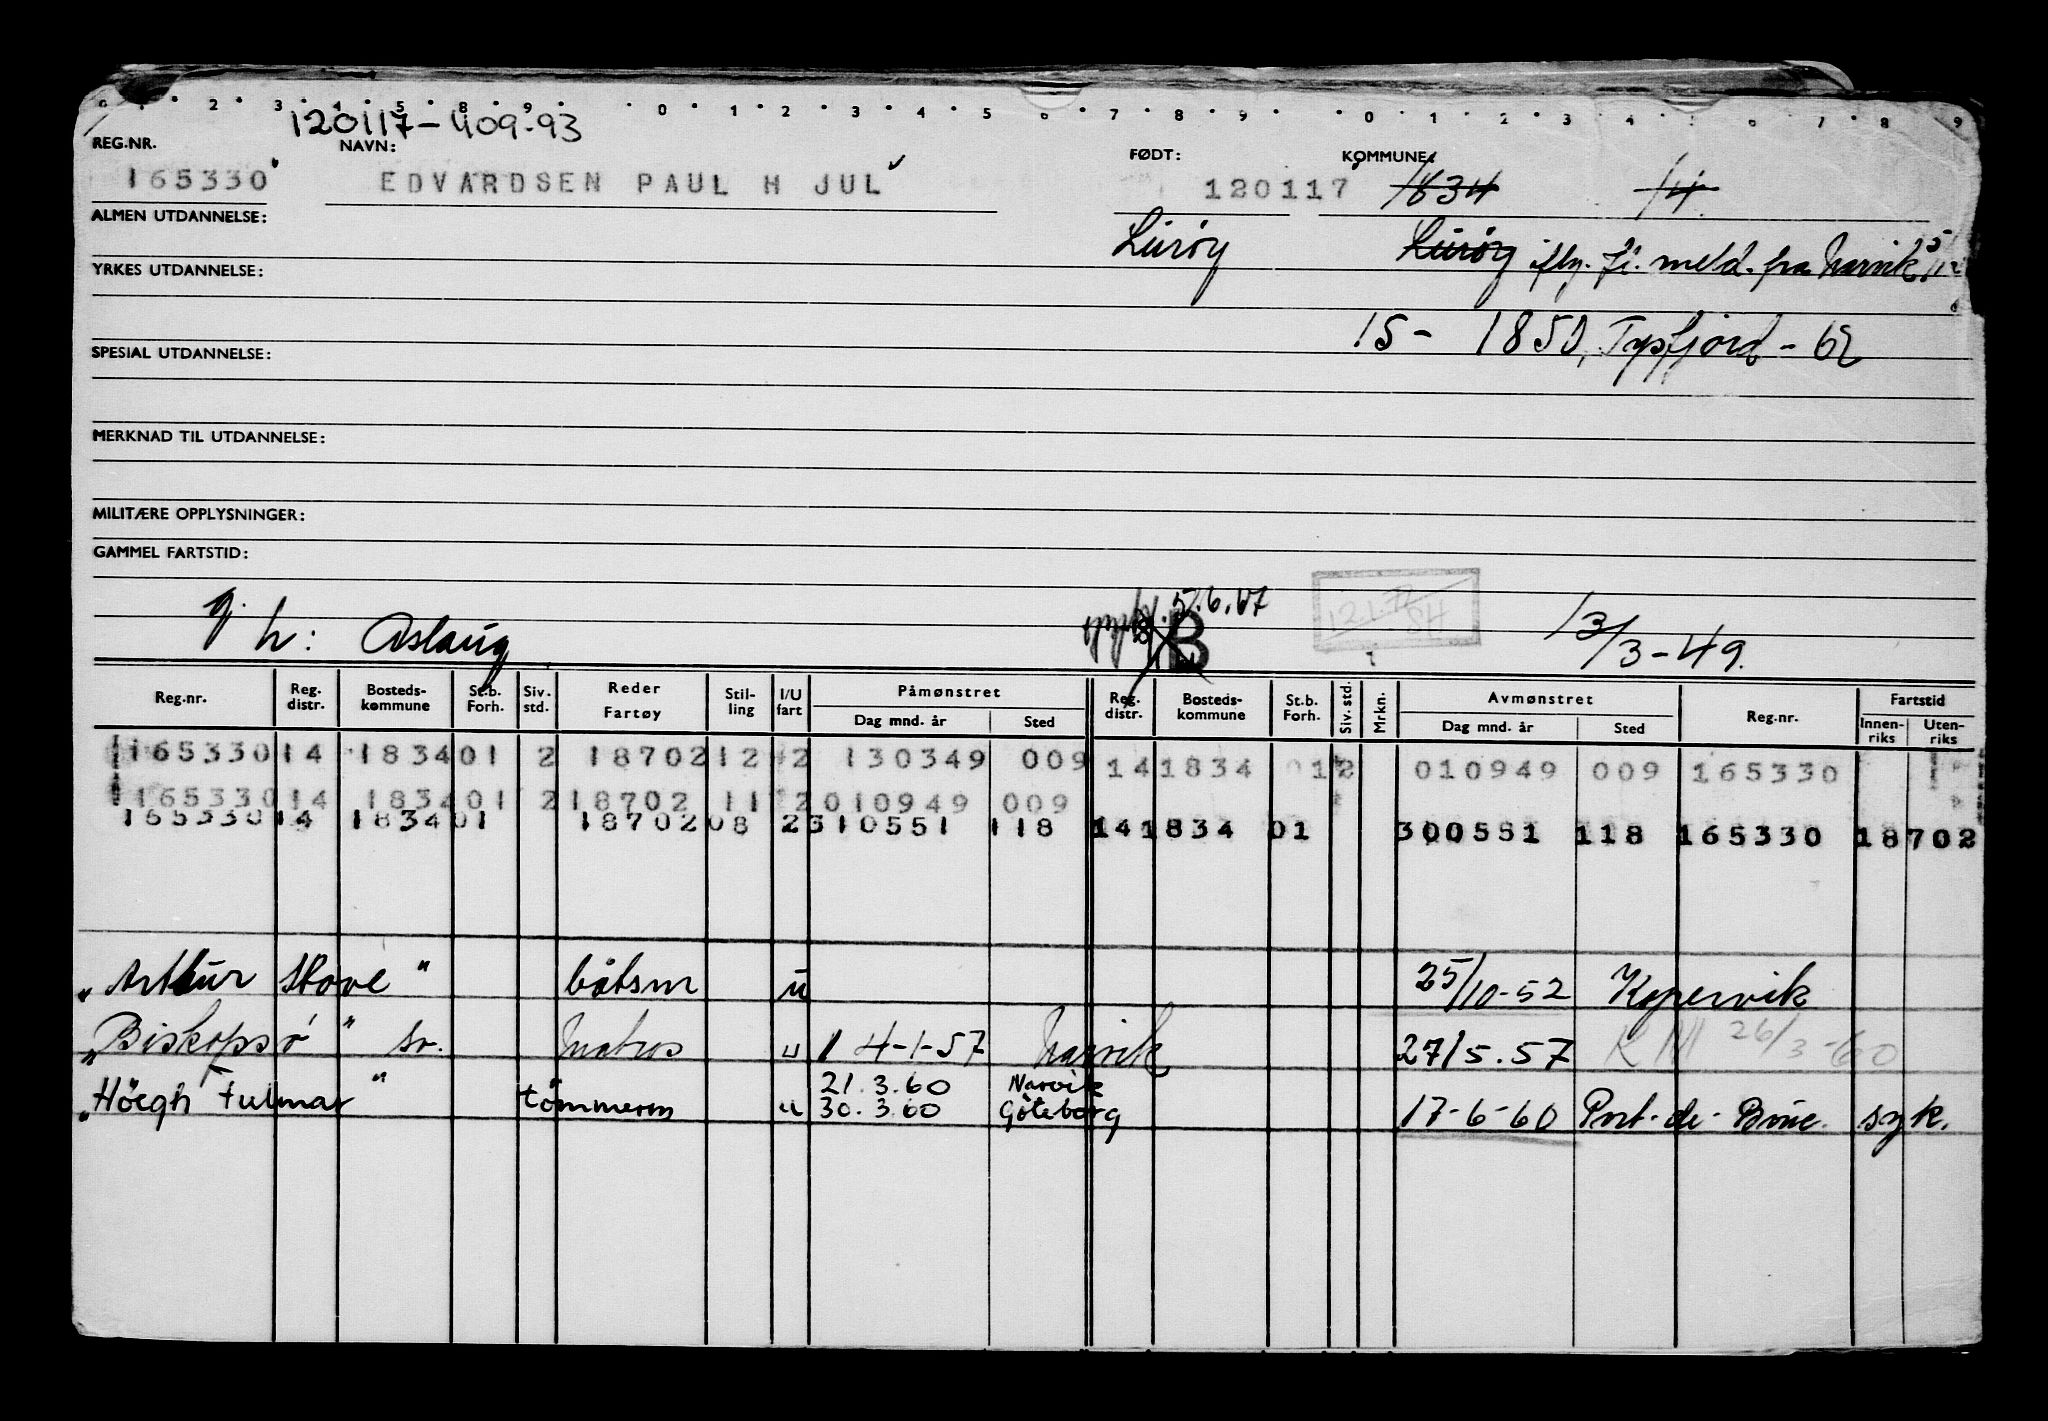 0 . . 2 . 3 . 4 . 5 . 8 . 9 . . 0 . 1 . 2 . 3 . 4 . 5 . 6 . 7 . 8 . 9 . . 0 . 1 . 2 . 3 . 4 . . 6 . 7 . 8 . 9
120117-409-93
REG.NR. NAVN: FØDT: KOMMUNE:
165330 EDVARDSEN PAUL H JUL 120117 1834 14
ALMEN UTDANNELSE: Lurøy Lurøy iflg. fl. meld. fra Narvik
YRKES UTDANNELSE:
15- 1850, Tysfjord - 62
SPESIAL UTDANNELSE:
MERKNAD TIL UTDANNELSE:
MILITÆRE OPPLYSNINGER:
GAMMEL FARTSTID:
g. h: Aslaug 5.6.47 B 13/3-49.
Reg.nr. Reg. distr. Bosteds-kommune St.b. Forh. Siv. std. Reder Fartøy Stil-ling I/U fart Påmønstret Dag mnd. år Sted Reg. distr. Bosteds-kommune St.b. Forh. Siv. std. Mrkn. Avmønstret Dag mnd. år Sted Reg.nr. Fartstid Innen-riks Uten-riks
165330 14 1834 01 2 18702 12 2 130349 009 14 1834 01 2 010949 009 165330
165330 14 1834 01 2 18702 11 2 010949 009
165330 14 1834 01 18702 08 2 310551 118 14 1834 01 300551 118 165330 18702
"Arthur Stove" båtsm u 25/10-52 Kopervik
"Biskopsø" sr. Matros u 14-1-57 Narvik 27/5.57 26/3-60
21.3.60 Narvik
"Höegh Fulmar" tömmerm u 30.3.60 Göteborg 17-6-60 Port-de-Bouc. syk.